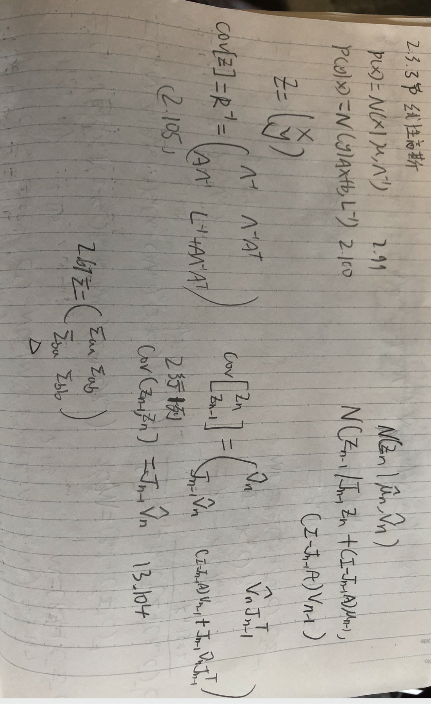 2.3.3节 线性高斯
p(x)=N(x|μ,Λ⁻¹) 2.99
p(y|x)=N(y|Ax+b,L⁻¹) 2.100
Z=(x
y)
cov[z]=R⁻¹=(Λ⁻¹ Λ⁻¹Aᵀ
AΛ⁻¹ L⁻¹+AΛ⁻¹Aᵀ)
(2.105)
Σ=(Σaa Σab
Σba Σbb)
N(Zn|μ̂n,V̂n)
N(Zn-1|Jn-1Zn+(I-Jn-1A)μn-1,
(I-Jn-1A)Vn-1)
cov[Zn
Zn-1]=(V̂n V̂nJn-1ᵀ
Jn-1V̂n (I-Jn-1A)Vn-1+Jn-1V̂nJn-1ᵀ)
cov(Zn-1,Zn)=Jn-1V̂n 13.104